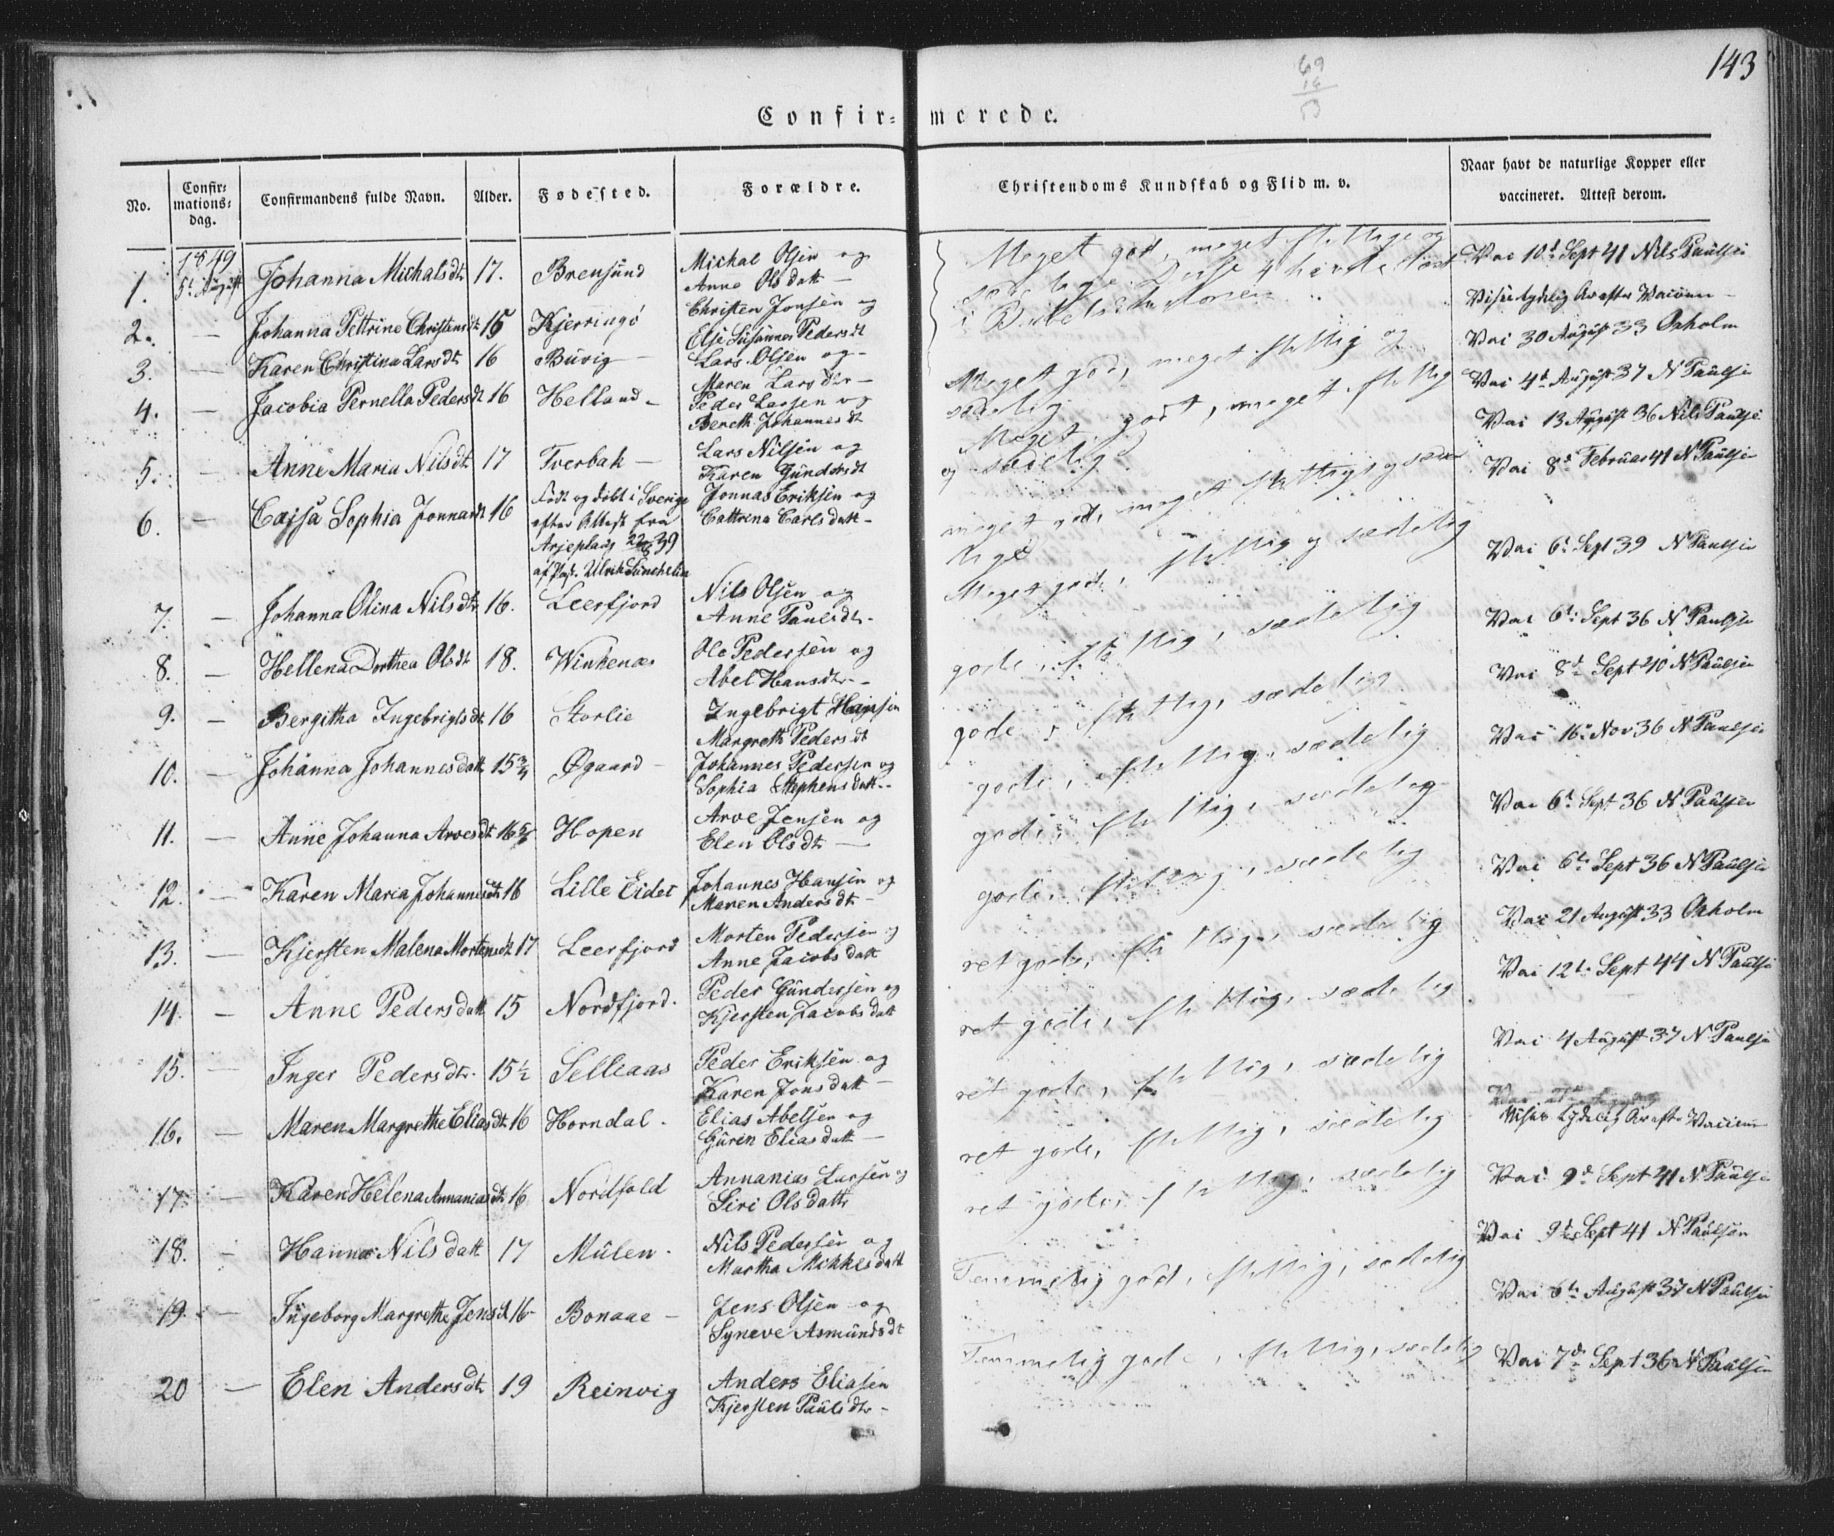 143
69
16
53
Confir= merede.
No.
Confir=
mations=
dag.
Confirmandens fulde Navn.
Alder.
Fødested.
Forældre.
Christendoms Kundskab og Flid m. v.
Naar havt de naturlige Kopper eller
vaccineret. Attest derom.
1849
1. 5t August Johanna Michalsdt 17. Brensund Michal Olsen og
Anne Olsdatt —
Meget god, meget flittige og
Vac 10d Sept 41 Nils Paulsen
2. — Johanna Pettrine Christensdt 15 Kjerringø Christen Jonsen og
Else Susannes Pedersdt
Viser tydelig Ar efter Vaccinen —
3. — Karen Christina Larsdt 16 Buvig — Lars Olsen og
Maren Larsdtr —
Meget god, meget flittig og
sædelig
Vac 30 August 33 Oxholm
4. — Jacobia Pernella Pedersdt 16 Helland — Peder Larsen og
Bereth Johannesdt
Meget godt, meget flittig
og sædelig
Vac 4d August 37 N Paulsen
Vac 13 August 36 Nils Paulsen
5. — Anne Maria Nilsdt 17 Tverbak — Lars Nilsen og
Karen Gundersdt
meget god, meget flittig og sæde
lige
Vac 8d Februar 41 N Paulsen
6. — Cajsa Sophia Jonnasdt 16 Født og døbt i Sverige
efter Attest fra
Arjeplaug 22/6 39
af Past. Ulrik Sundelin
Jonnas Eriksen og
Cattrina Carlsdatt —
Meget gode, flittig og sædelig
Vac 6t Sept 39 N Paulsen
7. — Johanna Olina Nilsdt 16. Leerfjord Nils Olsen og
Anne Paulsdt —
gode, flittig, sædelig
Vac 6t Sept 36 N Paulsen
8. — Hellena Dorthea Olsdt 18. Winkenæs Ole Pedersen og
Abel Hansdtr —
gode, flittig, sædelig
Vac 8d Sept 40 N Paulsen
9. — Bergitha Ingebrigtsdt 16 Storlie Ingebrigt Hansen
Margreth Pedersdt
gode, flittig, sædelig
Vac 16 Nov 36 N Paulsen
10. — Johanna Johannesdatt 15 3/4 Øgaard — Johannes Pedersen og
Sophia Stephensdatt —
gode, flittig, sædelig
Vac 6t Sept 36 N Paulsen
11. — Anne Johanna Arvesdt 16 3/4 Hopen Arve Jensen og
Elen Olsdt —
gode, flittig, sædelig
Vac 6t Sept 36 N Paulsen
12. — Karen Maria Johannesdt 16 Lille Eidet Johannes Hansen og
Maren Andersdt —
ret gode, flittig, sædelig
Vac 21 August 33 Oxholm
13. — Kjersten Malena Mortensdt 17 Leerfjord Morten Pedersen og
Anne Jacobsdatt
ret gode, flittig, sædelig
Vac 12t Sept 44 N Paulsen
14. — Anne Pedersdatt 15 Nordfjord. Peder Gundersen og
Kjersten Jacobsdatt
ret gode, flittig, sædelig
Vac 4 August 37 N Paulsen
15. — Inger Pedersdt. 15 1/2 Selleaas Peder Eriksen og
Karen Jonsdatt —
ret gode, flittig, sædelig
16. — Maren Margrethe Eliasdt 16 Horndal. Elias Abelsen og
Guren Eliasdatt —
Viser tydelig Ar efter Vaccinen
17. — Karen Helena Annaniasdt 16 Nordfold Annanias Larsen og
Siri Olsdatt
ret gode, flittig, sædelig
Vac 9d Sept 41 N Paulsen
18. — Hanna Nilsdatt 17 Mulen. Nils Pedersen og
Martha Mikkelsdatt
Temmelig god, flittig, sædelig
Vac 9d Sept 41 N Paulsen
19. — Ingeborg Margrethe Jensdt 16 Bonaae — Jens Olsen og
Syneve Asmundsdt
Temmelig gode, flittig, sædelig
Vac 6t August 37 N Paulsen
20 — Elen Andersdt 19 Reinvig Anders Eliasen
Kjersten Paulsdtr —
Vac 7d Sept 36 N Paulsen